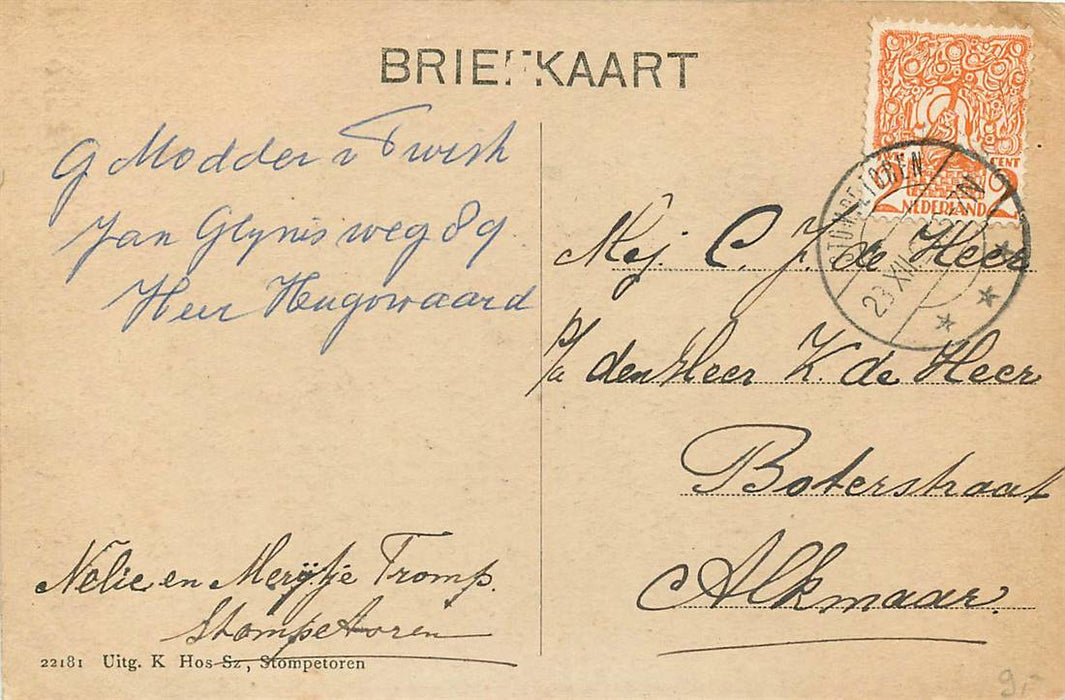 BRIEFKAART
G Modder v Twisk
Jan Glynis weg 89
Heer Hugowaard
Nelie en Merijtje Tromp.
Stompetoren
22181 Uitg. K Hos Sz, Stompetoren
CENT
2 2
NEDERLAND
STOMPETOREN
23 XII
Mej. C. J. de Heer
p/a den Heer K. de Heer
Boterstraat
Alkmaar.
9,-